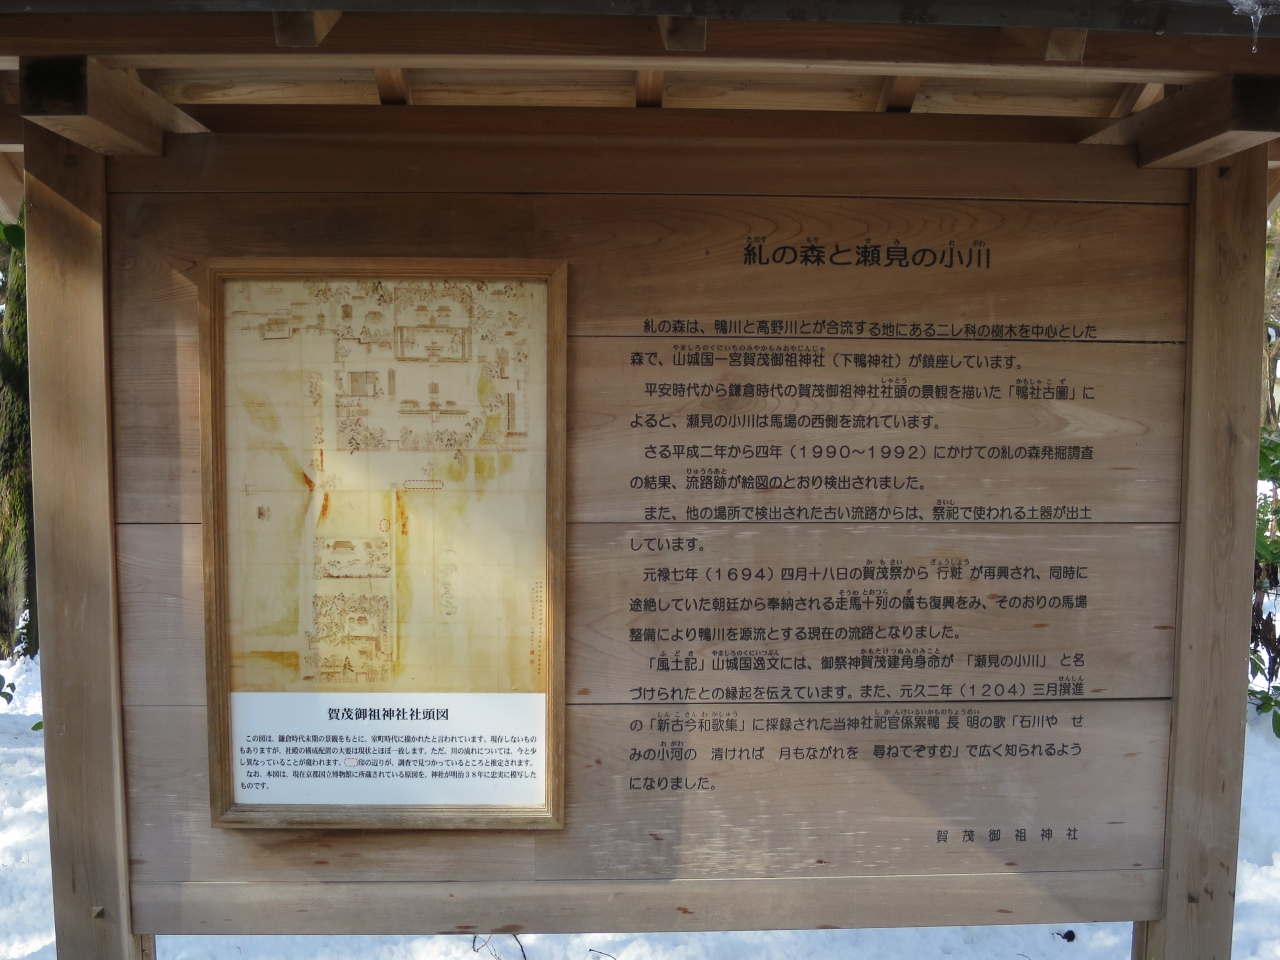 糺の森と瀬見の小川
糺の森は、鴨川と高野川とが合流する地にあるニレ科の樹木を中心とした
森で、山城国一宮賀茂御祖神社（下鴨神社）が鎮座しています。
平安時代から鎌倉時代の賀茂御祖神社社頭の景観を描いた「鴨社古圖」に
よると、瀬見の小川は馬場の西側を流れています。
さる平成二年から四年（1990～1992）にかけての糺の森発掘調査
の結果、流路跡が絵図のとおり検出されました。
また、他の場所で検出された古い流路からは、祭祀で使われる土器が出土
しています。
元禄七年（1694）四月十八日の賀茂祭から 行粧 が再興され、同時に
途絶していた朝廷から奉納される走馬十列の儀も復興をみ、そのおりの馬場
整備により鴨川を源流とする現在の流路となりました。
「風土記」山城国逸文には、御祭神賀茂建角身命が 「瀬見の小川」 と名
づけられたとの縁起を伝えています。また、元久二年（1204）三月撰進
の「新古今和歌集」に採録された当神社祀官係累鴨 長 明の歌「石川や せ
みの小河の 清ければ 月もながれを 尋ねてぞすむ」で広く知られるよう
になりました。
賀茂御祖神社
賀茂御祖神社社頭図
この図は、鎌倉時代末期の景観をもとに、室町時代に描かれたと言われています。現存しないもの
もありますが、社殿の構成配置の大要は現状とほぼ一致します。ただ、川の流れについては、今と少
し異なっていることが窺われます。印の辺りが、調査で見つかっているところと推定されます。
なお、本図は、現在京都国立博物館に所蔵されている原図を、神社が明治38年に忠実に模写した
ものです。